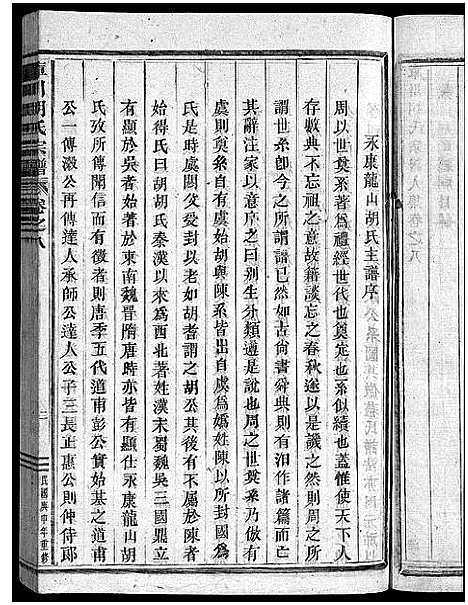 永康龍山胡氏主譜序
周以世奠系著爲禮經世代也奠定也系似續也蓋惟使天下人
存收典存典不忘祖之意故籍談忘之春秋遂以是譏之然則周之所
謂世系卽今之所謂譜已然如古尚書舜典則有汨作諸篇而亡
其辭注家以意序之曰别生分類遵是說也周之世奠系乃倣有
虞則奠系自有虞始胡與陳系皆出自虞爲嬀姓陳以所封國爲
氏是時虞閼父爰封以老如胡者謂之胡公其後有不屬於陳者
始得氏曰胡胡氏秦漢以來爲西北著姓漢末蜀魏吳三國鼎立
有顯於吳者始於東南魏晋隋唐時亦皆有顯仕永康龍山胡
氏攷所傳聞信而有徵者則唐季五代道甫彭公實始基之道甫
公一傳溵公再傳達人承師公達人公子三長正惠公則仲侍郎
庫川胡氏宗譜
卷之八
二
民國庚申年重修